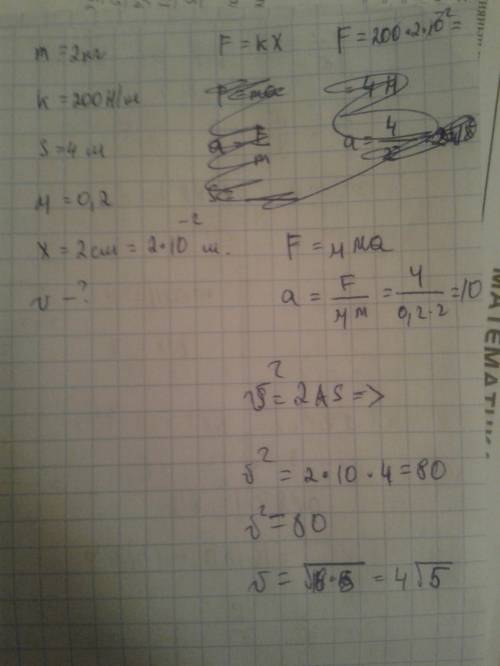 m = 2кг
k = 200 Н/м
S = 4 м
μ = 0,2
x = 2 см = 2·10⁻² м.
v - ?
F = kx
F = 200·2·10⁻² =
= 4 Н
F = μma
a = F/μm = 4/0,2·2 = 10
v² = 2AS =>
v² = 2·10·4 = 80
v² = 80
v = √ = 4√5
МАТЕМАТИК